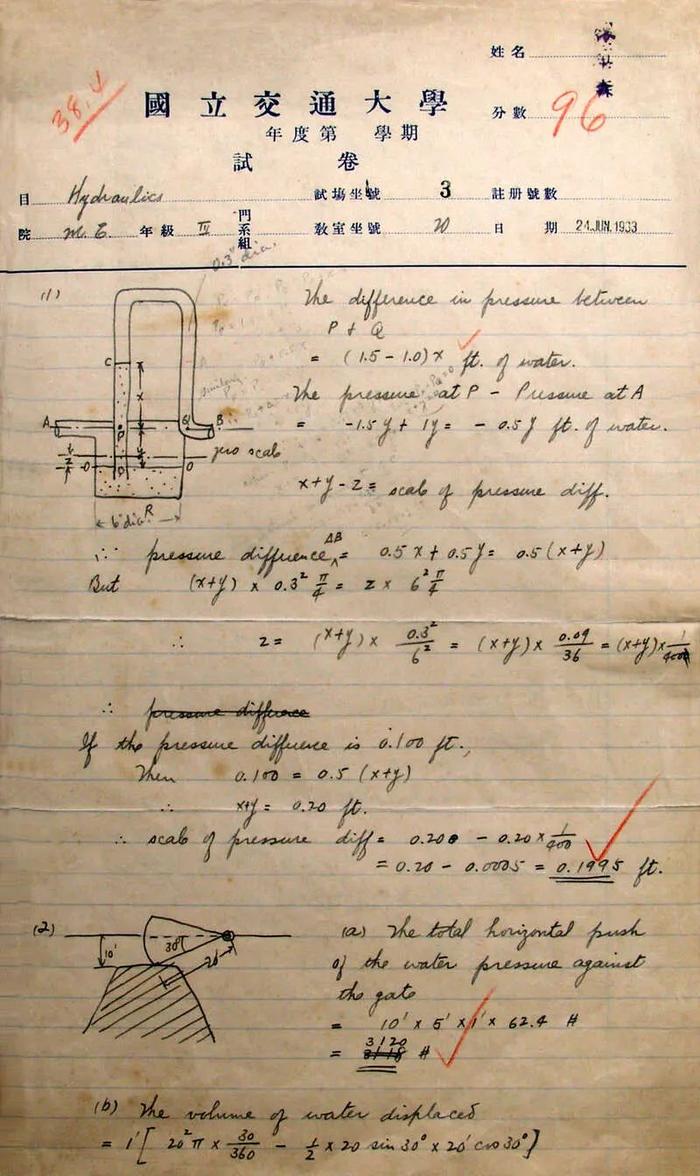 姓名
38.4
國立交通大學
分數 96
年度第 學期
試卷
目 Hydraulics 試場坐號 3 註册號數
院 M.E. 年級 IV 門系組 教室坐號 20 日期 24.JUN.1933
0.3" dia.
(1) The difference in pressure between
P + Q
= (1.5 - 1.0) x ft. of water.
The pressure at P - Pressure at A
= -1.5 y + 1y = - 0.5 y ft. of water.
C
x
A P Q B
zero scale
z O O
D
6" dia. R
x+y-z = scale of pressure diff.
∴ pressure difference AB = 0.5 x + 0.5 y = 0.5 (x+y)
But (x+y) × 0.3² π/4 = z × 6² π/4
∴ z = (x+y) × 0.3²/6² = (x+y) × 0.09/36 = (x+y) × 1/400
∴ pressure difference
If the pressure difference is 0.100 ft.,
Then 0.100 = 0.5 (x+y)
∴ x+y = 0.20 ft.
∴ scale of pressure diff = 0.200 - 0.20 × 1/400
= 0.20 - 0.0005 = 0.1995 ft.
(2) (a) The total horizontal push
10' 30° 20'
of the water pressure against
the gate
= 10' × 5' × 1' × 62.4 #
= 3120 #
(b) The volume of water displaced
= 1' [ 20² π × 30/360 - 1/2 × 20 sin 30° × 20' cos 30° ]